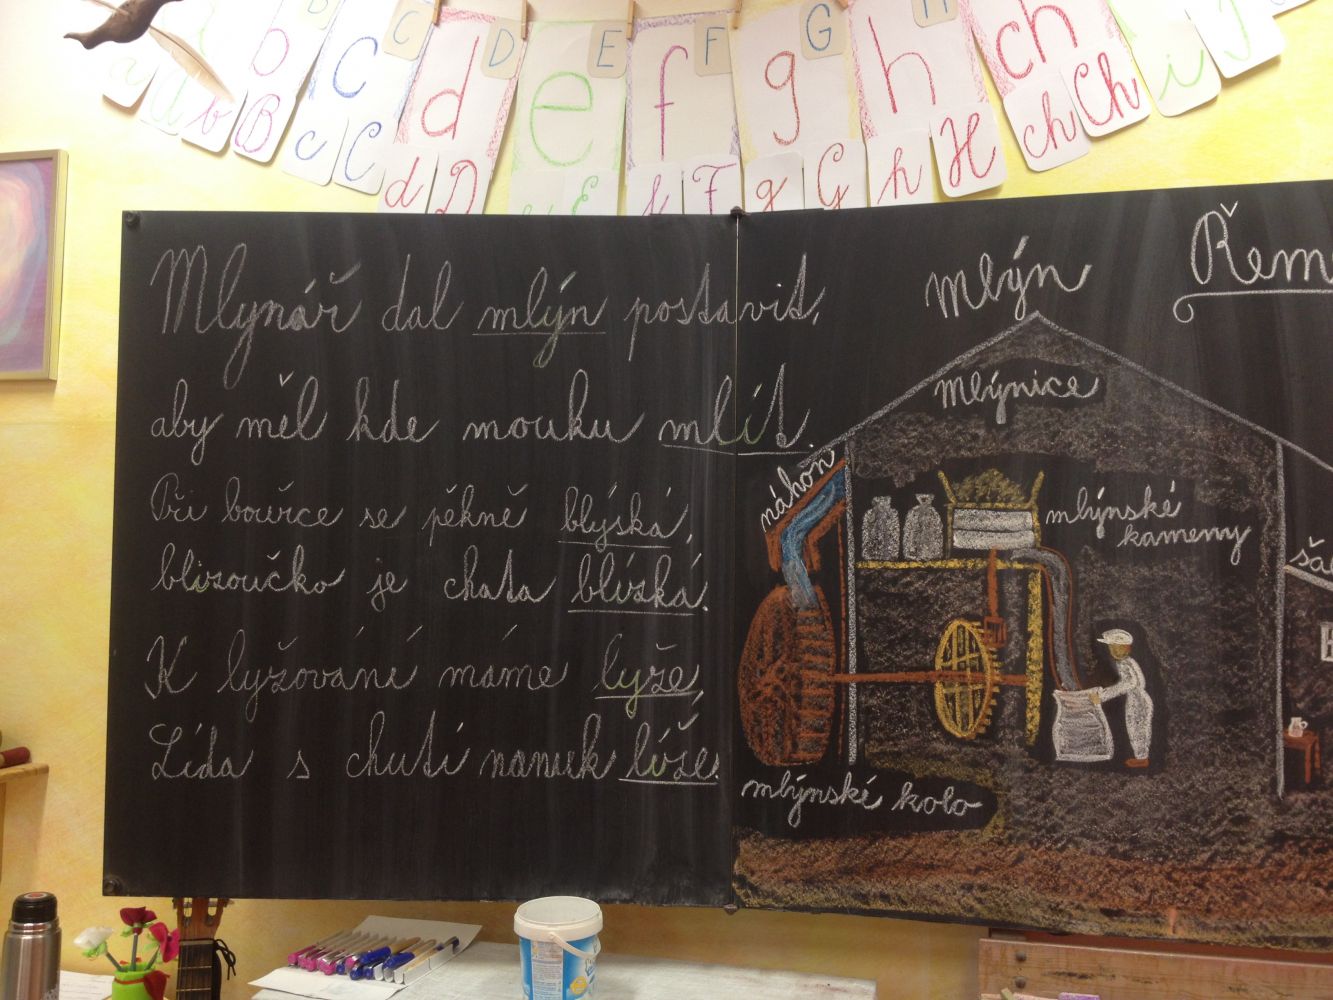 b C D E F G H
a b c d e f g h ch i
B c C d D E F g G h H ch Ch i
Mlynář dal mlýn postavit,
aby měl kde mouku mlít.
Při bouřce se pěkně blýská,
blizoučko je chata blízká.
K lyžování máme lyže,
Lída s chutí nanuk líže.
mlýn
Řeme
mlýnice
náhon
mlýnské
kameny
mlýnské kolo